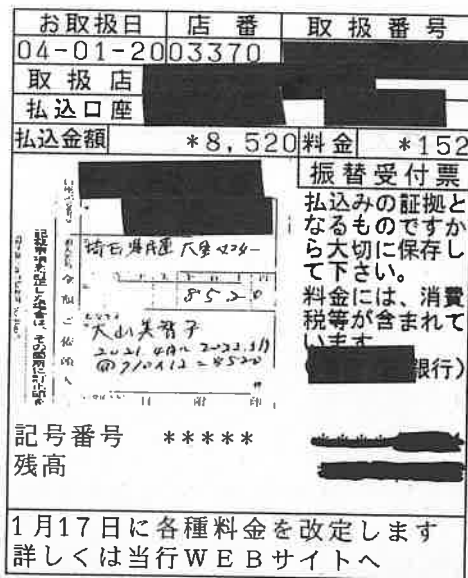 お取扱日 店番 取扱番号
04-01-2003370
取扱店
払込口座
払込金額 *8,520 料金 *152
振替受付票
払込みの証拠と
なるものですか
ら大切に保存し
て下さい。
料金には、消費
税等が含まれて
います
銀行)
記載事項を訂正した場合は、その箇所に訂正印を
8520
大山美智子
@710×12=8520
日附印
記号番号 *****
残高
1月17日に各種料金を改定します
詳しくは当行WEBサイトへ